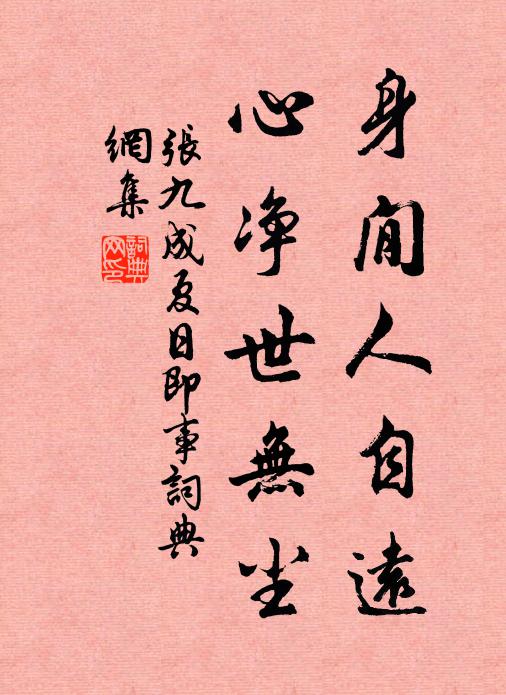 身閒人自遠
心淨世無尘
張九成夏日即事詞典
網集
詞典網印